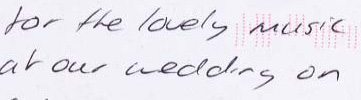 for the lovely music
at our wedding on